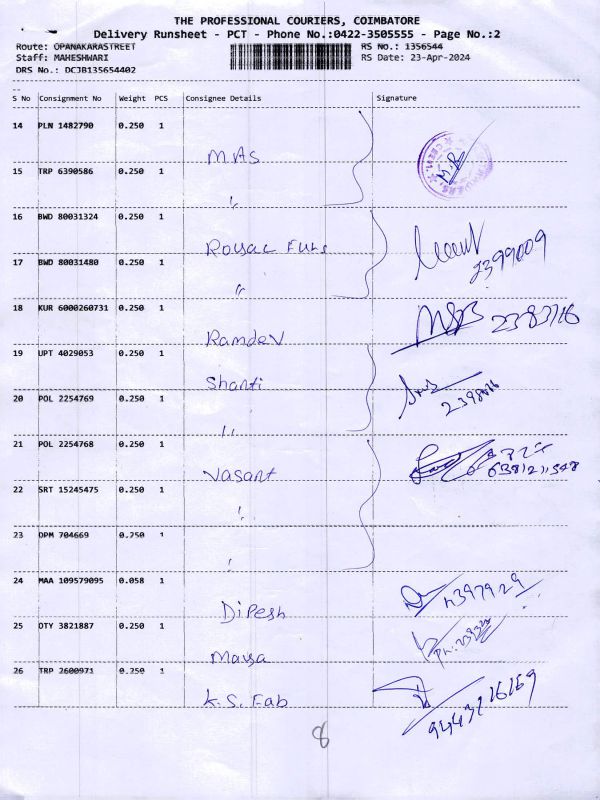 THE PROFESSIONAL COURIERS, COIMBATORE
Delivery Runsheet - PCT - Phone No.:0422-3505555 - Page No.:2
Route: OPANAKARASTREET RS No.: 1356544
Staff: MAHESHWARI RS Date: 23-Apr-2024
DRS No.: DCJB135654402
S No Consignment No Weight PCS Consignee Details Signature
14 PLN 1482790 0.250 1
MAS
15 TRP 6390586 0.250 1
"
16 BWD 80031324 0.250 1
Royal Furs
17 BWD 80031480 0.250 1
" 2399009
18 KUR 6000260731 0.250 1
Ramdev
19 UPT 4029053 0.250 1
Shanti
20 POL 2254769 0.250 1
"
21 POL 2254768 0.250 1
Vasant
22 SRT 15245475 0.250 1
"
23 OPM 704669 0.250 1
"
24 MAA 109579095 0.058 1
Dipesh
25 OTY 3821887 0.250 1
Maya
26 TRP 2600971 0.250 1
K.S. Fab
8